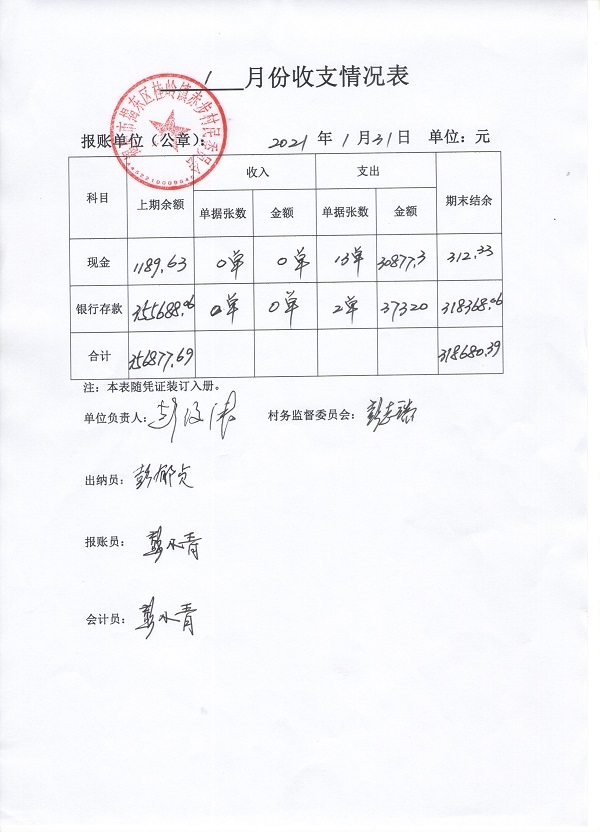 1 月份收支情况表
市揭东区桂岭镇赤步村民委员会
报账单位（公章）： 2021 年 1 月 31 日 单位：元
科目 上期余额 收入 支出 期末结余
单据张数 金额 单据张数 金额
现金 1189.63 0单 0单 13单 30877.3 312.33
银行存款 355688.06 0单 0单 2单 37320 318368.06
合计 356877.69 318680.39
注：本表随凭证装订入册。
单位负责人： 村务监督委员会：
出纳员：彭郁贞
报账员：彭水青
会计员：彭水青